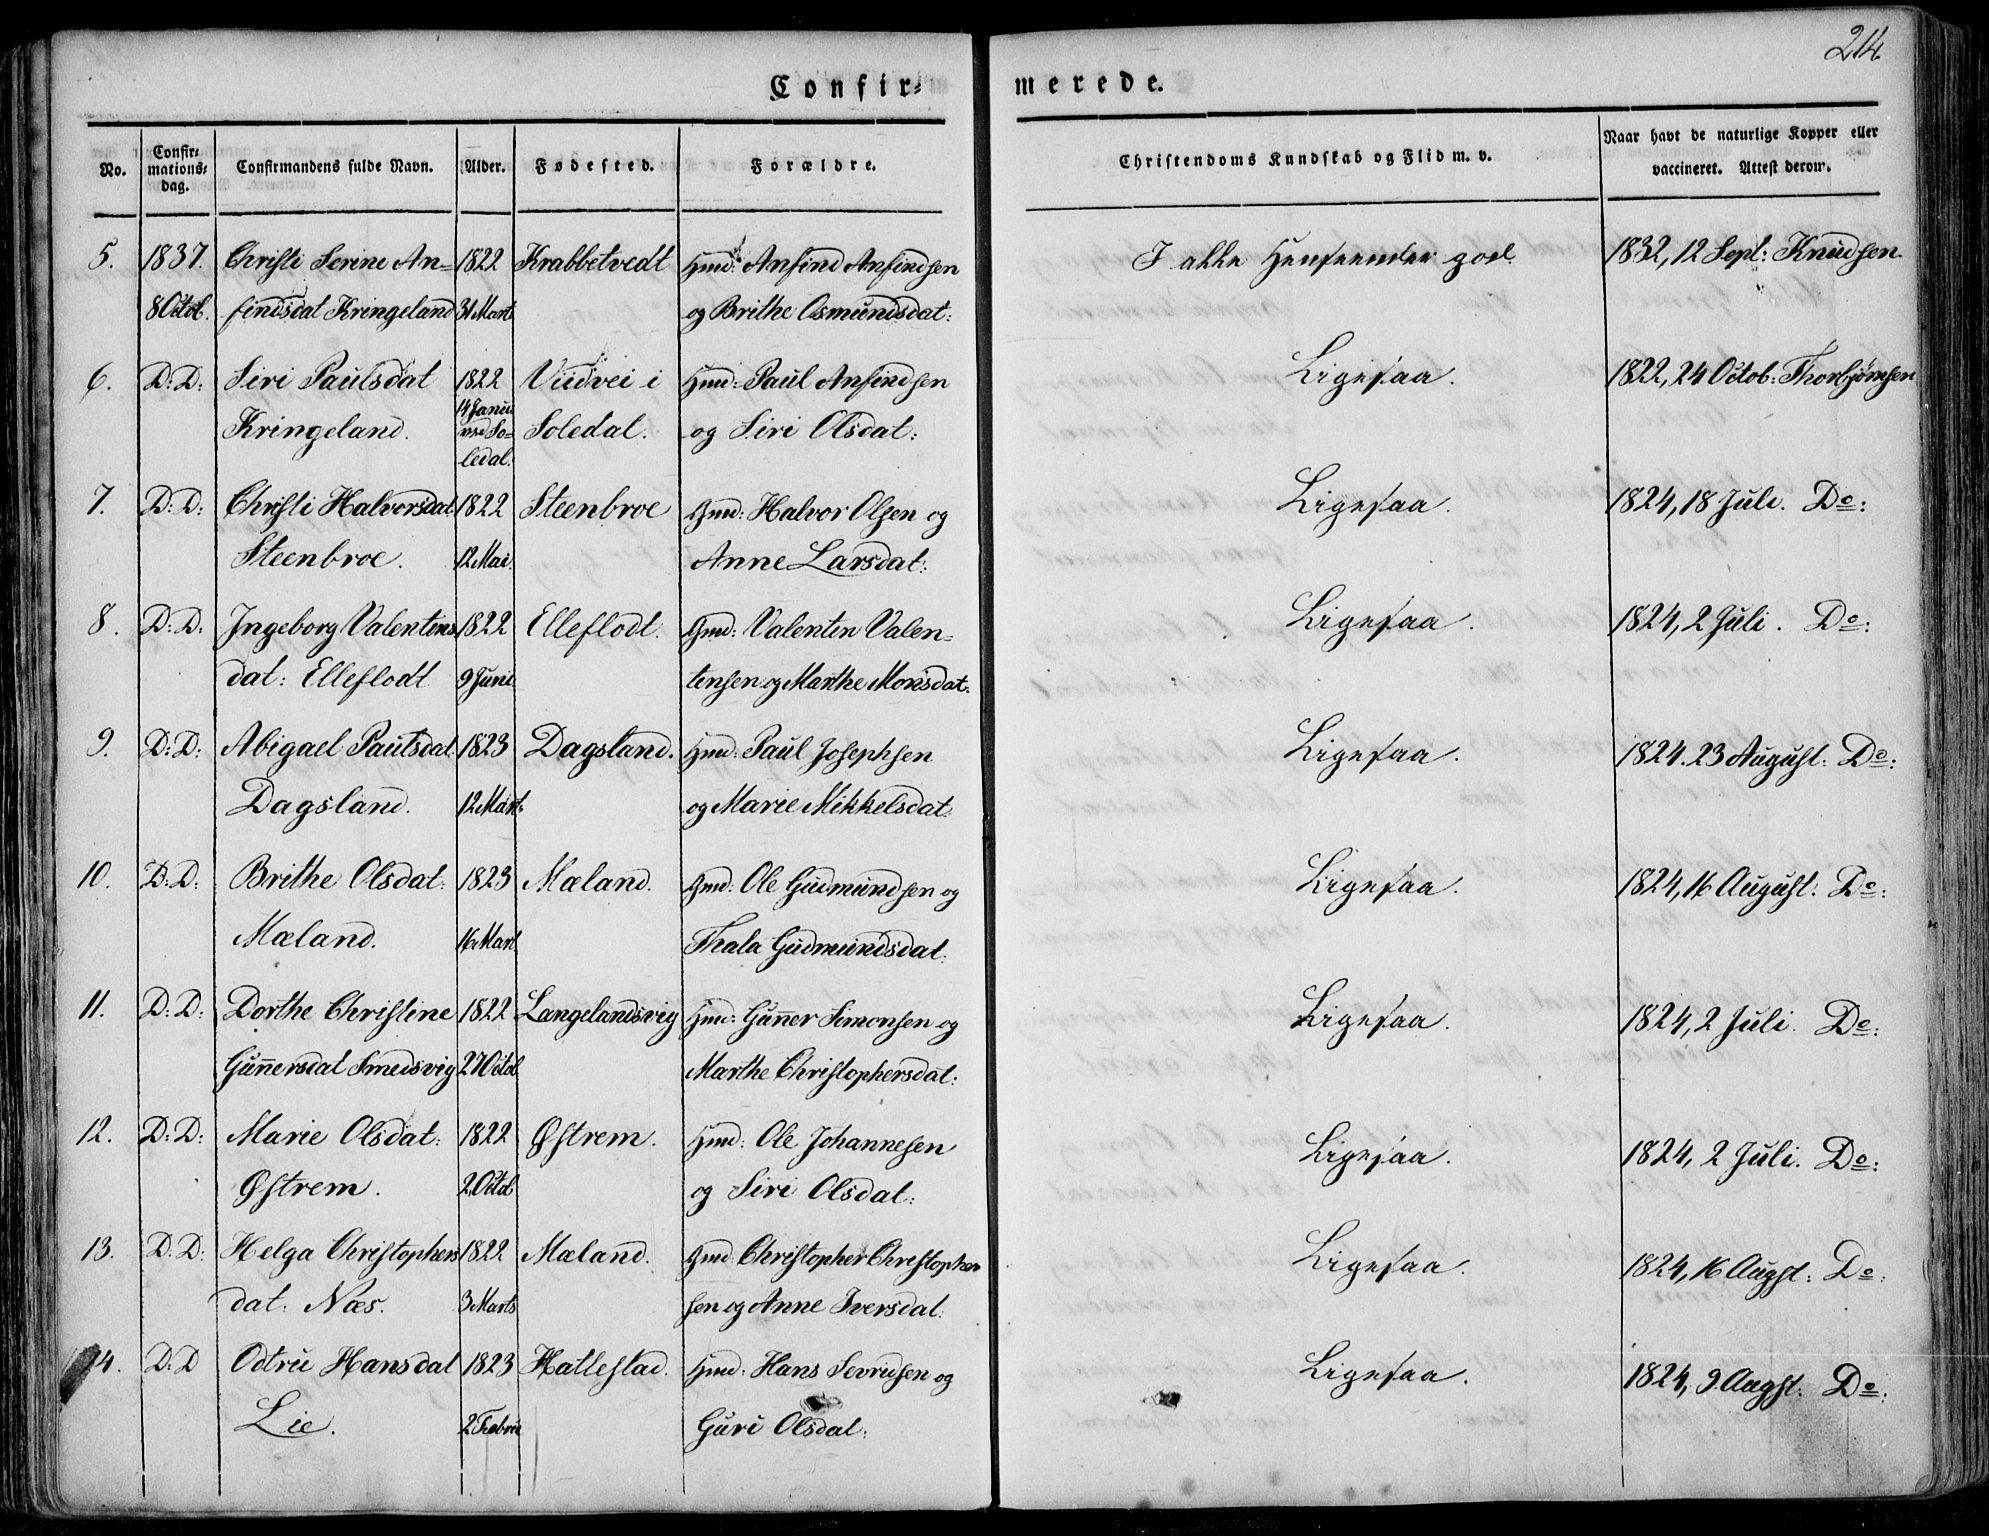 214.
Confir= merede.
No. Confirmations=dag. Confirmandens fulde Navn. Alder. Fødested. Forældre. Christendoms Kundskab og Flid m. v. Naar havt de naturlige Kopper eller vaccineret. Attest derom.
5. 1837. Christi Serine An= 1822 Krabbetvedt Hmd: Anfind Anfindsen I alle Henseender god. 1832, 12 Sept: Knudsen.
8 Octob. findsdat Kringeland 31 Mart og Brithe Osmundsdat:
6. D: D: Siri Paulsdat 1822 Viidvei i Hmd: Paul Anfindsen Ligesaa. 1822, 24 Octob: Thorbjørnsen
14 Janu
Kringeland. Soledal. og Siri Olsdat:
ledal.
7. D: D: Christi Halvorsdat 1822 Steenbroe Gmd: Halvor Olsen og Ligesaa. 1824, 18 Juli. Do:
Steenbroe. 12 Mai. Anne Larsdat:
8. D: D: Ingeborg Valentins 1822 Elleflodt. Gmd: Valentin Valen= Ligesaa. 1824, 2 Juli. Do:
dat: Elleflodt 9 Juni tinsen og Marthe Monsdat:
9. D: D: Abigael Paulsdat. 1823 Dagsland. Hmd: Paul Josephsen Ligesaa. 1824. 23 August: Do:
Dagsland. 12 Mart og Marie Mikkelsdat:
10. D: D: Brithe Olsdat: 1823 Mæland. Gmd: Ole Gudmundsen og Ligesaa. 1824, 16 August. Do:
Mæland. 16 Mart Thala Gudmundsdat:
11. D: D: Dorthe Christine 1822 Langelandsvig Hmd: Gunner Simonsen og Ligesaa. 1824, 2 Juli. Do:
Gunnersdat Smedsvig 27 Octob Marthe Christophersdat:
12. D: D: Marie Olsdat: 1822 Østrem. Hmd: Ole Johannesen Ligesaa. 1824, 2 Juli. Do:
Østrem. 2 Octob og Siri Olsdat:
13. D: D: Helga Christophers 1822 Mæland. Gmd Christopher Christopher Ligesaa. 1824, 16 Augst: Do:
dat: Næs. 3 Marts sen og Anne Iversdat:
14. D: D Odtru Hansdat 1823 Hatlestad. Hmd: Hans Sevridsen og Ligesaa. 1824, 9 Augst: Do:
Lie. 2 Febru Guri Olsdat: